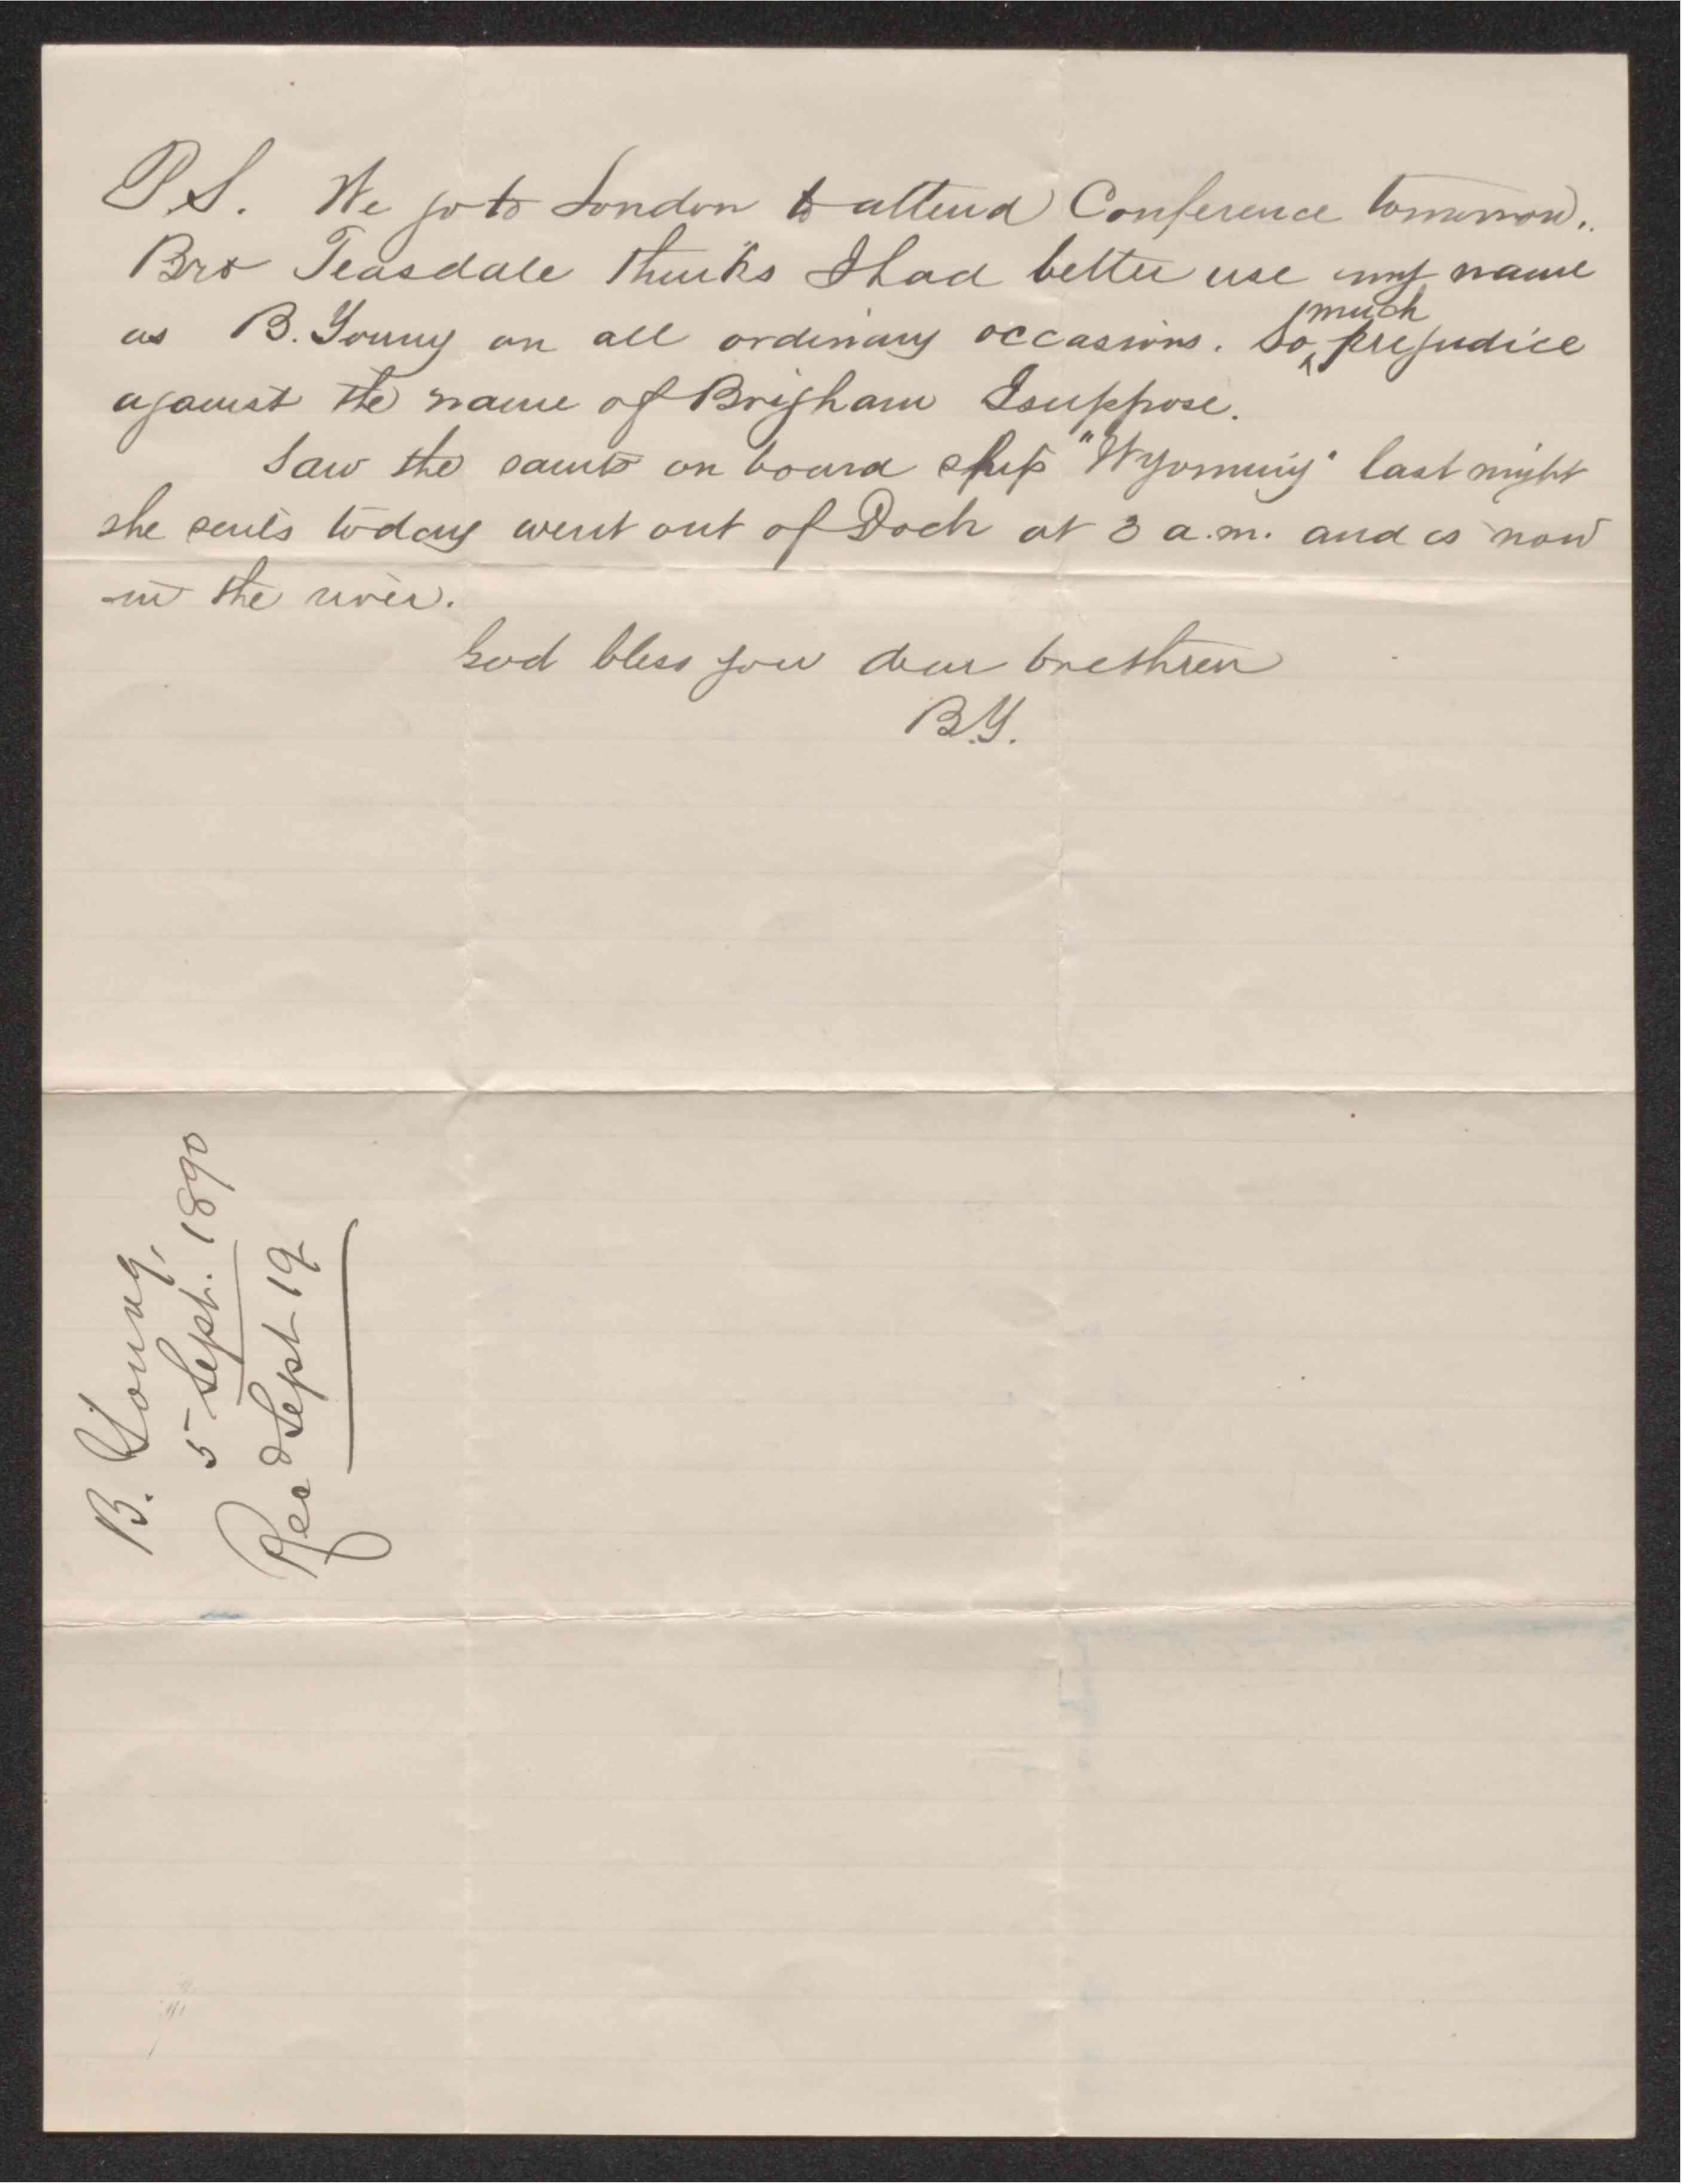 P.S. We go to London to attend Conference tomorrow.
Bro Teasdale thinks I had better use my name
as B. Young on all ordinary occasions. So much prejudice
against the name of Brigham I suppose.
Saw the saints on board ship "Wyoming" last night
she sails today went out of Dock at 3 a.m. and is now
in the river.
God bless you dear brethren
B.Y.
B. Young,
5 Sept. 1890
Recd Sept 19